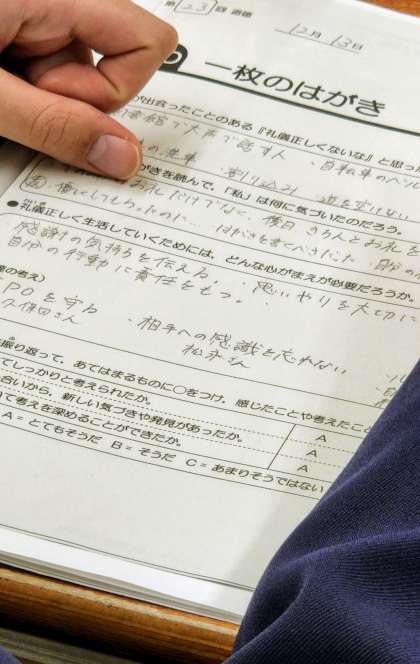 第23回 道徳
12月13日
一枚のはがき
が出会ったことのある『礼儀正しくないな』と思っ
書館で大声で話す人 ・自転車のベ
割り込み
がきを読んで、「私」は何に気づいたのだろう。
お礼だけでなく、後日 きちんとお礼を
働いてもらったのに はがきを書くべきだった
●礼儀正しく生活していくためには、どんな心がまえが必要だろうか。
感謝の気持ちを伝える ・思いやりを大切に
自分の行動に責任をもつ。
の考え)
TPOを守る ・相手への感謝を忘れない
久保田さん 松永さん
振り返って、あてはまるものに○をつけ、感じたことや考えたこと
てしっかりと考えられたか。 A
合いから、新しい気づきや発見があったか。 A
いて考えを深めることができたか。 A
A＝とてもそうだ B＝そうだ C＝あまりそうではない